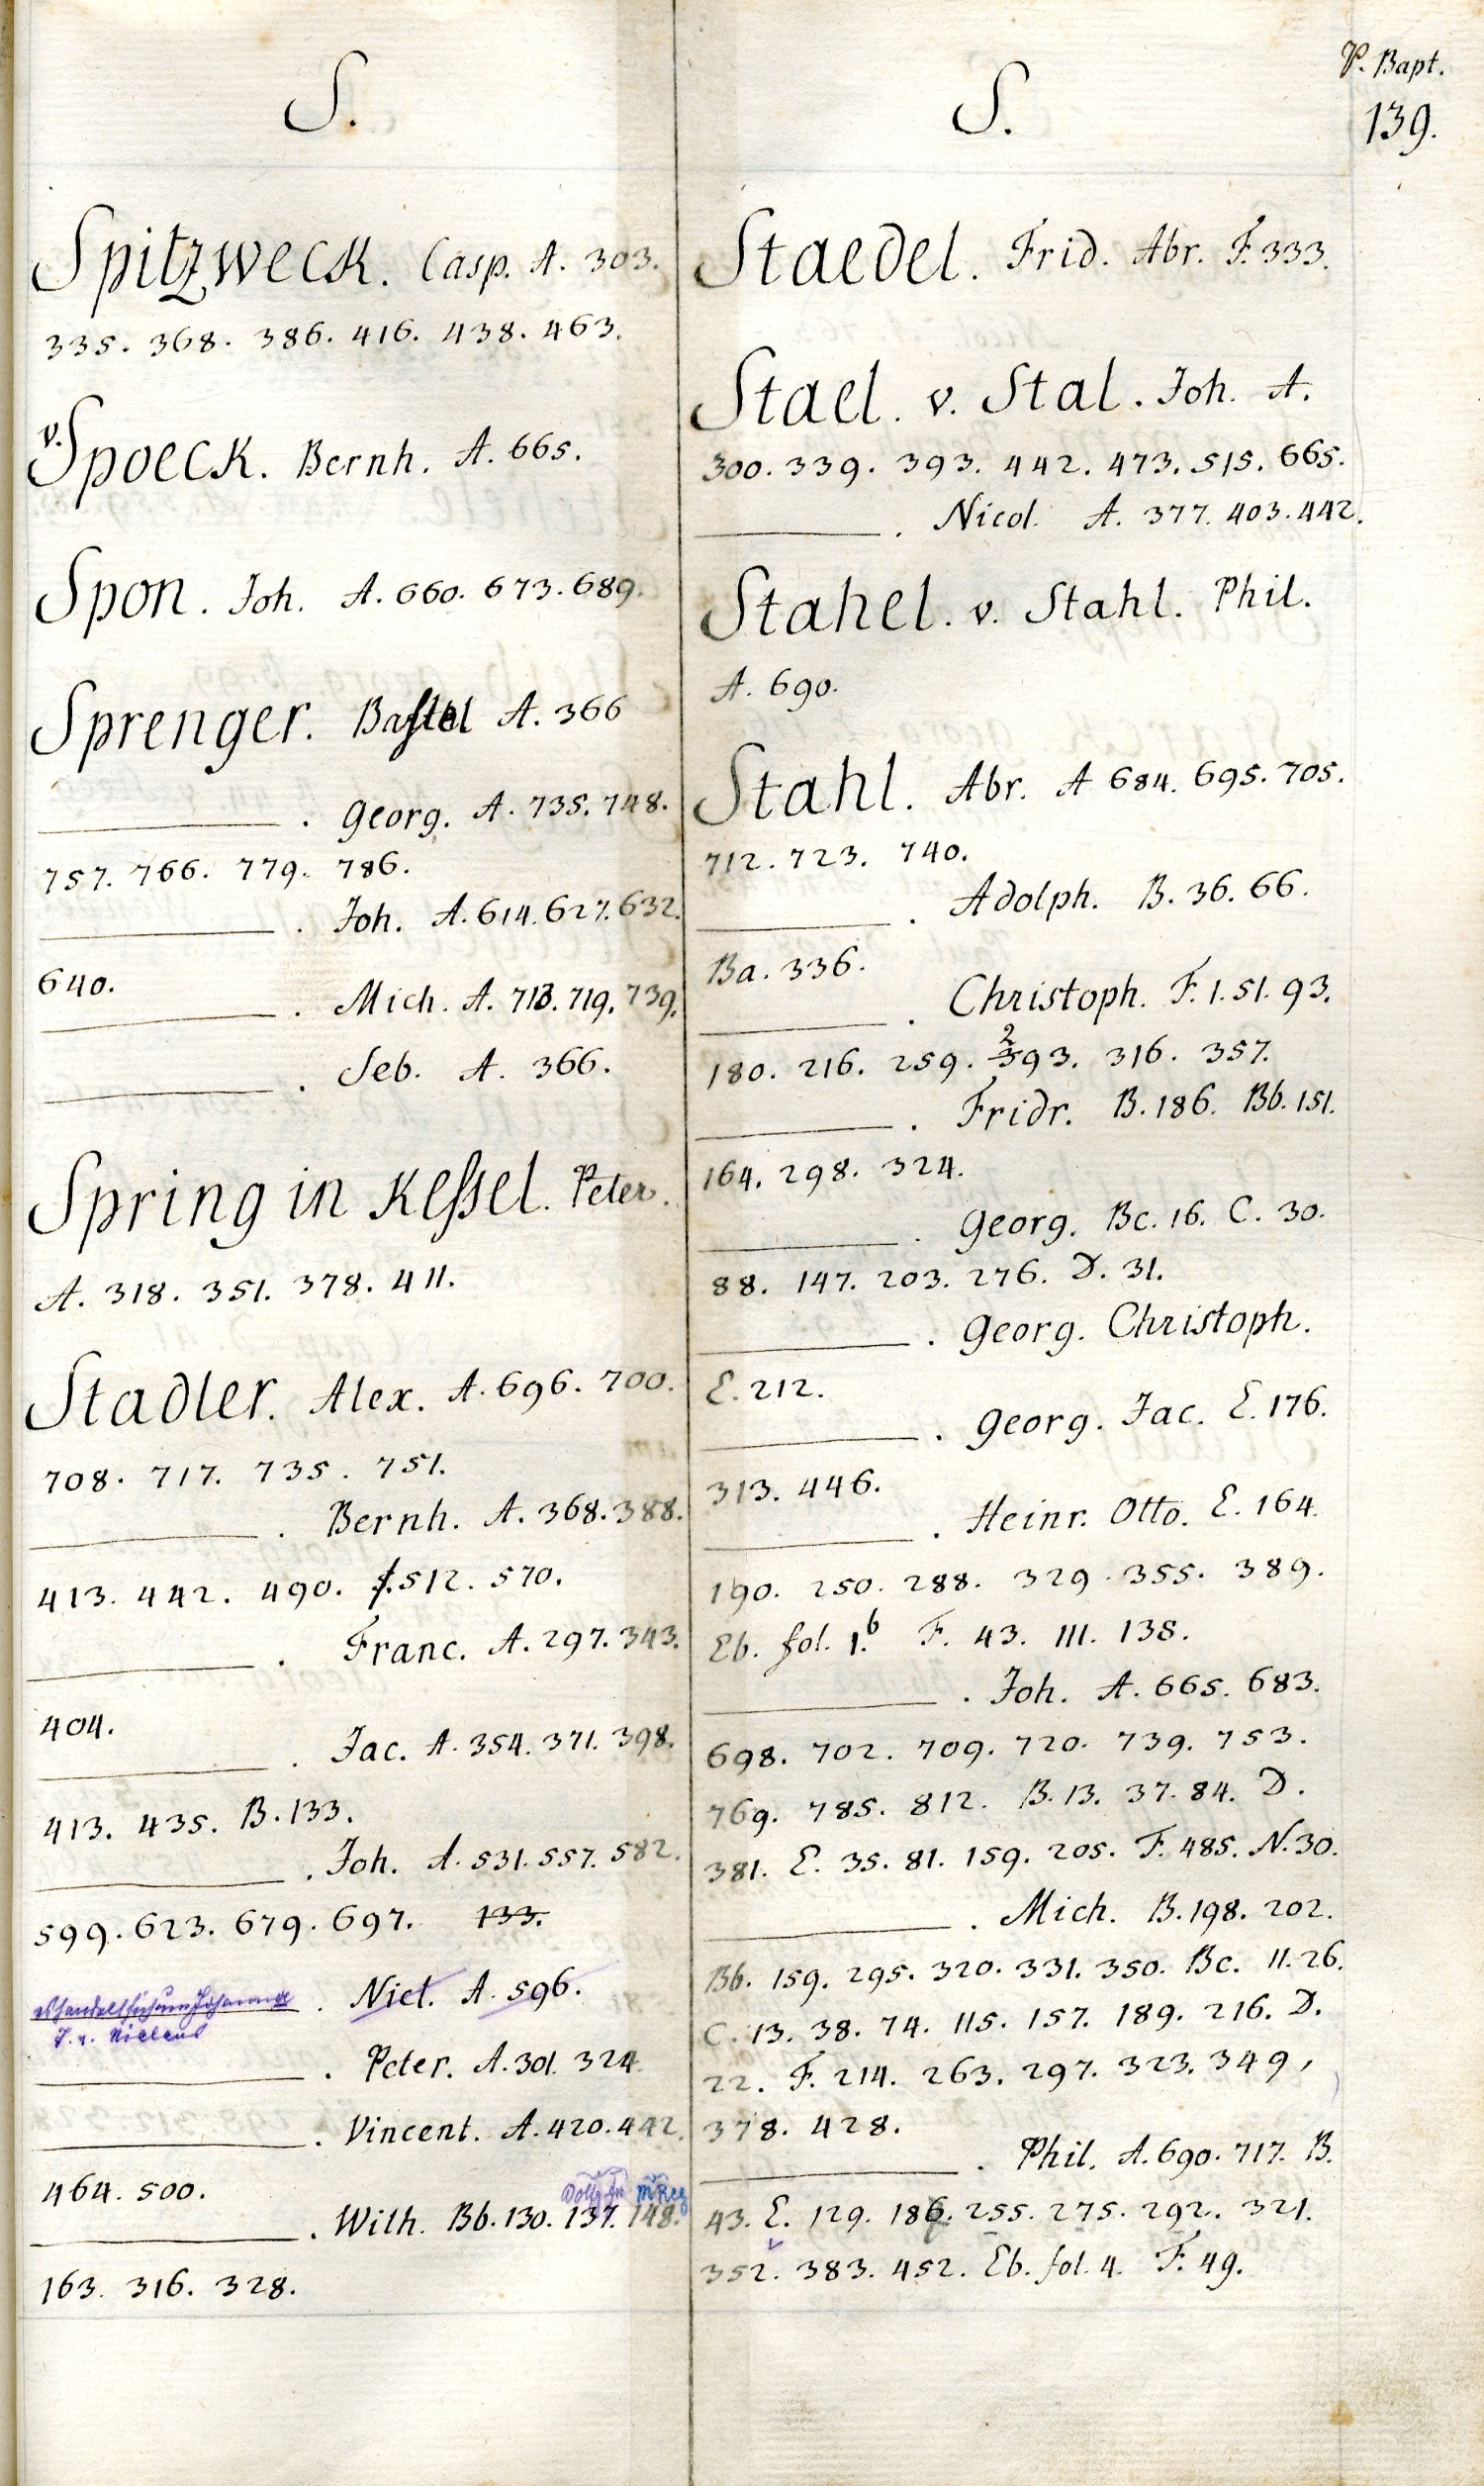 P. Bapt.
139.
S.
Spitzweck. Casp. A. 303.
335. 368. 386. 416. 438. 463.
v. Spoeck. Bernh. A. 665.
Spon. Joh. A. 660. 673. 689.
Sprenger. Bastel A. 366
———. Georg. A. 735. 748.
757. 766. 779. 786.
———. Joh. A. 614. 627. 632.
640.
———. Mich. A. 713. 719. 739.
———. Seb. A. 366.
Spring in Keßel. Peter.
A. 318. 351. 378. 411.
Stadler. Alex. A. 696. 700.
708. 717. 735. 751.
———. Bernh. A. 368. 388.
413. 442. 490. 512. 570.
———. Franc. A. 297. 343.
404.
———. Jac. A. 354. 371. 398.
413. 435. B. 133.
———. Joh. A. 531. 557. 582.
599. 623. 679. 697. 133.
es handelt sich um Johannes
———. Nicl. A. 596.
———. Peter. A. 301. 324.
———. Vincent. A. 420. 442.
464. 500.
———. Wilh. Bb. 130. 137. 148.
163. 316. 328.
S.
Staedel. Frid. Abr. F. 333.
Stael. v. Stal. Joh. A.
300. 339. 393. 442. 473. 515. 665.
———. Nicol. A. 377. 403. 442.
Stahel. v. Stahl. Phil.
A. 690.
Stahl. Abr. A 684. 695. 705.
712. 723. 740.
———. Adolph. B. 36. 66.
Ba. 336.
———. Christoph. F. 1. 51. 93.
180. 216. 259. 293. 316. 357.
———. Fridr. B. 186. Bb. 151.
164. 298. 324.
———. Georg. Bc. 16. C. 30.
88. 147. 203. 276. D. 31.
———. Georg. Christoph.
E. 212.
———. Georg. Jac. E. 176.
313. 446.
———. Heinr. Otto. E. 164.
190. 250. 288. 329. 355. 389.
Eb. fol. 1.b F. 43. 111. 138.
———. Joh. A. 665. 683.
698. 702. 709. 720. 739. 753.
769. 785. 812. B. 13. 37. 84. D.
381. E. 35. 81. 159. 205. F. 485. N. 30.
———. Mich. B. 198. 202.
Bb. 159. 295. 320. 331. 350. Bc. 11. 26.
C. 13. 38. 74. 115. 157. 189. 216. D.
22. F. 214. 263. 297. 323. 349,
378. 428.
———. Phil. A. 690. 717. B.
43. E. 129. 186. 255. 275. 292. 321.
352. 383. 452. Eb. fol. 4. F. 49.